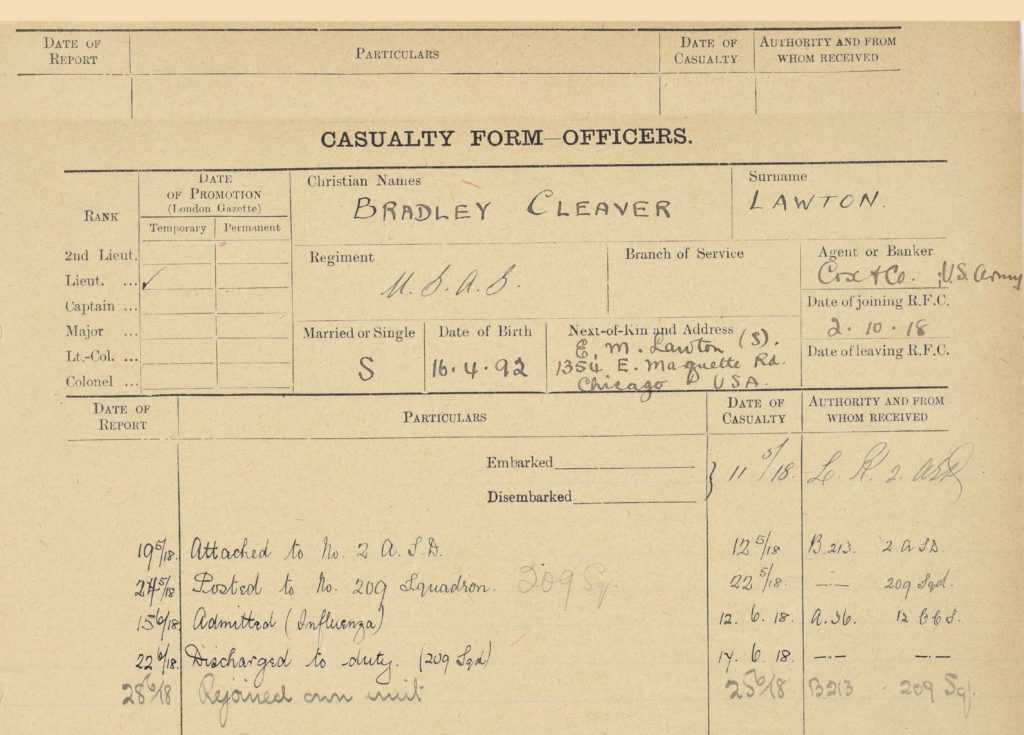 DATE OF REPORT PARTICULARS DATE OF CASUALTY AUTHORITY AND FROM WHOM RECEIVED
CASUALTY FORM—OFFICERS.
RANK DATE OF PROMOTION (London Gazette) Temporary Permanent
2nd Lieut.
Lieut. ... ✓
Captain ...
Major ...
Lt.-Col. ...
Colonel ...
Christian Names
BRADLEY CLEAVER
Surname
LAWTON.
Regiment
U.S.A.S.
Branch of Service
Agent or Banker
Cox & Co. ; U.S. Army
Date of joining R.F.C.
2.10.18
Date of leaving R.F.C.
Married or Single
S
Date of Birth
16.4.92
Next-of-Kin and Address
E. M. Lawton (S).
1354 E. Marquette Rd.
Chicago USA.
DATE OF REPORT PARTICULARS DATE OF CASUALTY AUTHORITY AND FROM WHOM RECEIVED
Embarked
Disembarked
11 5/18.
19 5/18. Attached to No. 2 A.S.D. 12 5/18 B.213. 2 ASD
24 5/18 Posted to No. 209 Squadron. 209 Sq. 22 5/18. —·— 209 Sqd.
15 6/18. Admitted (Influenza) 12.6.18. A.36. 12 CCS.
22 6/18. Discharged to duty. (209 Sqd) 6.18. —·— —·—
28 6/18 Rejoined own unit 25 6/18 B213 209 Sq.